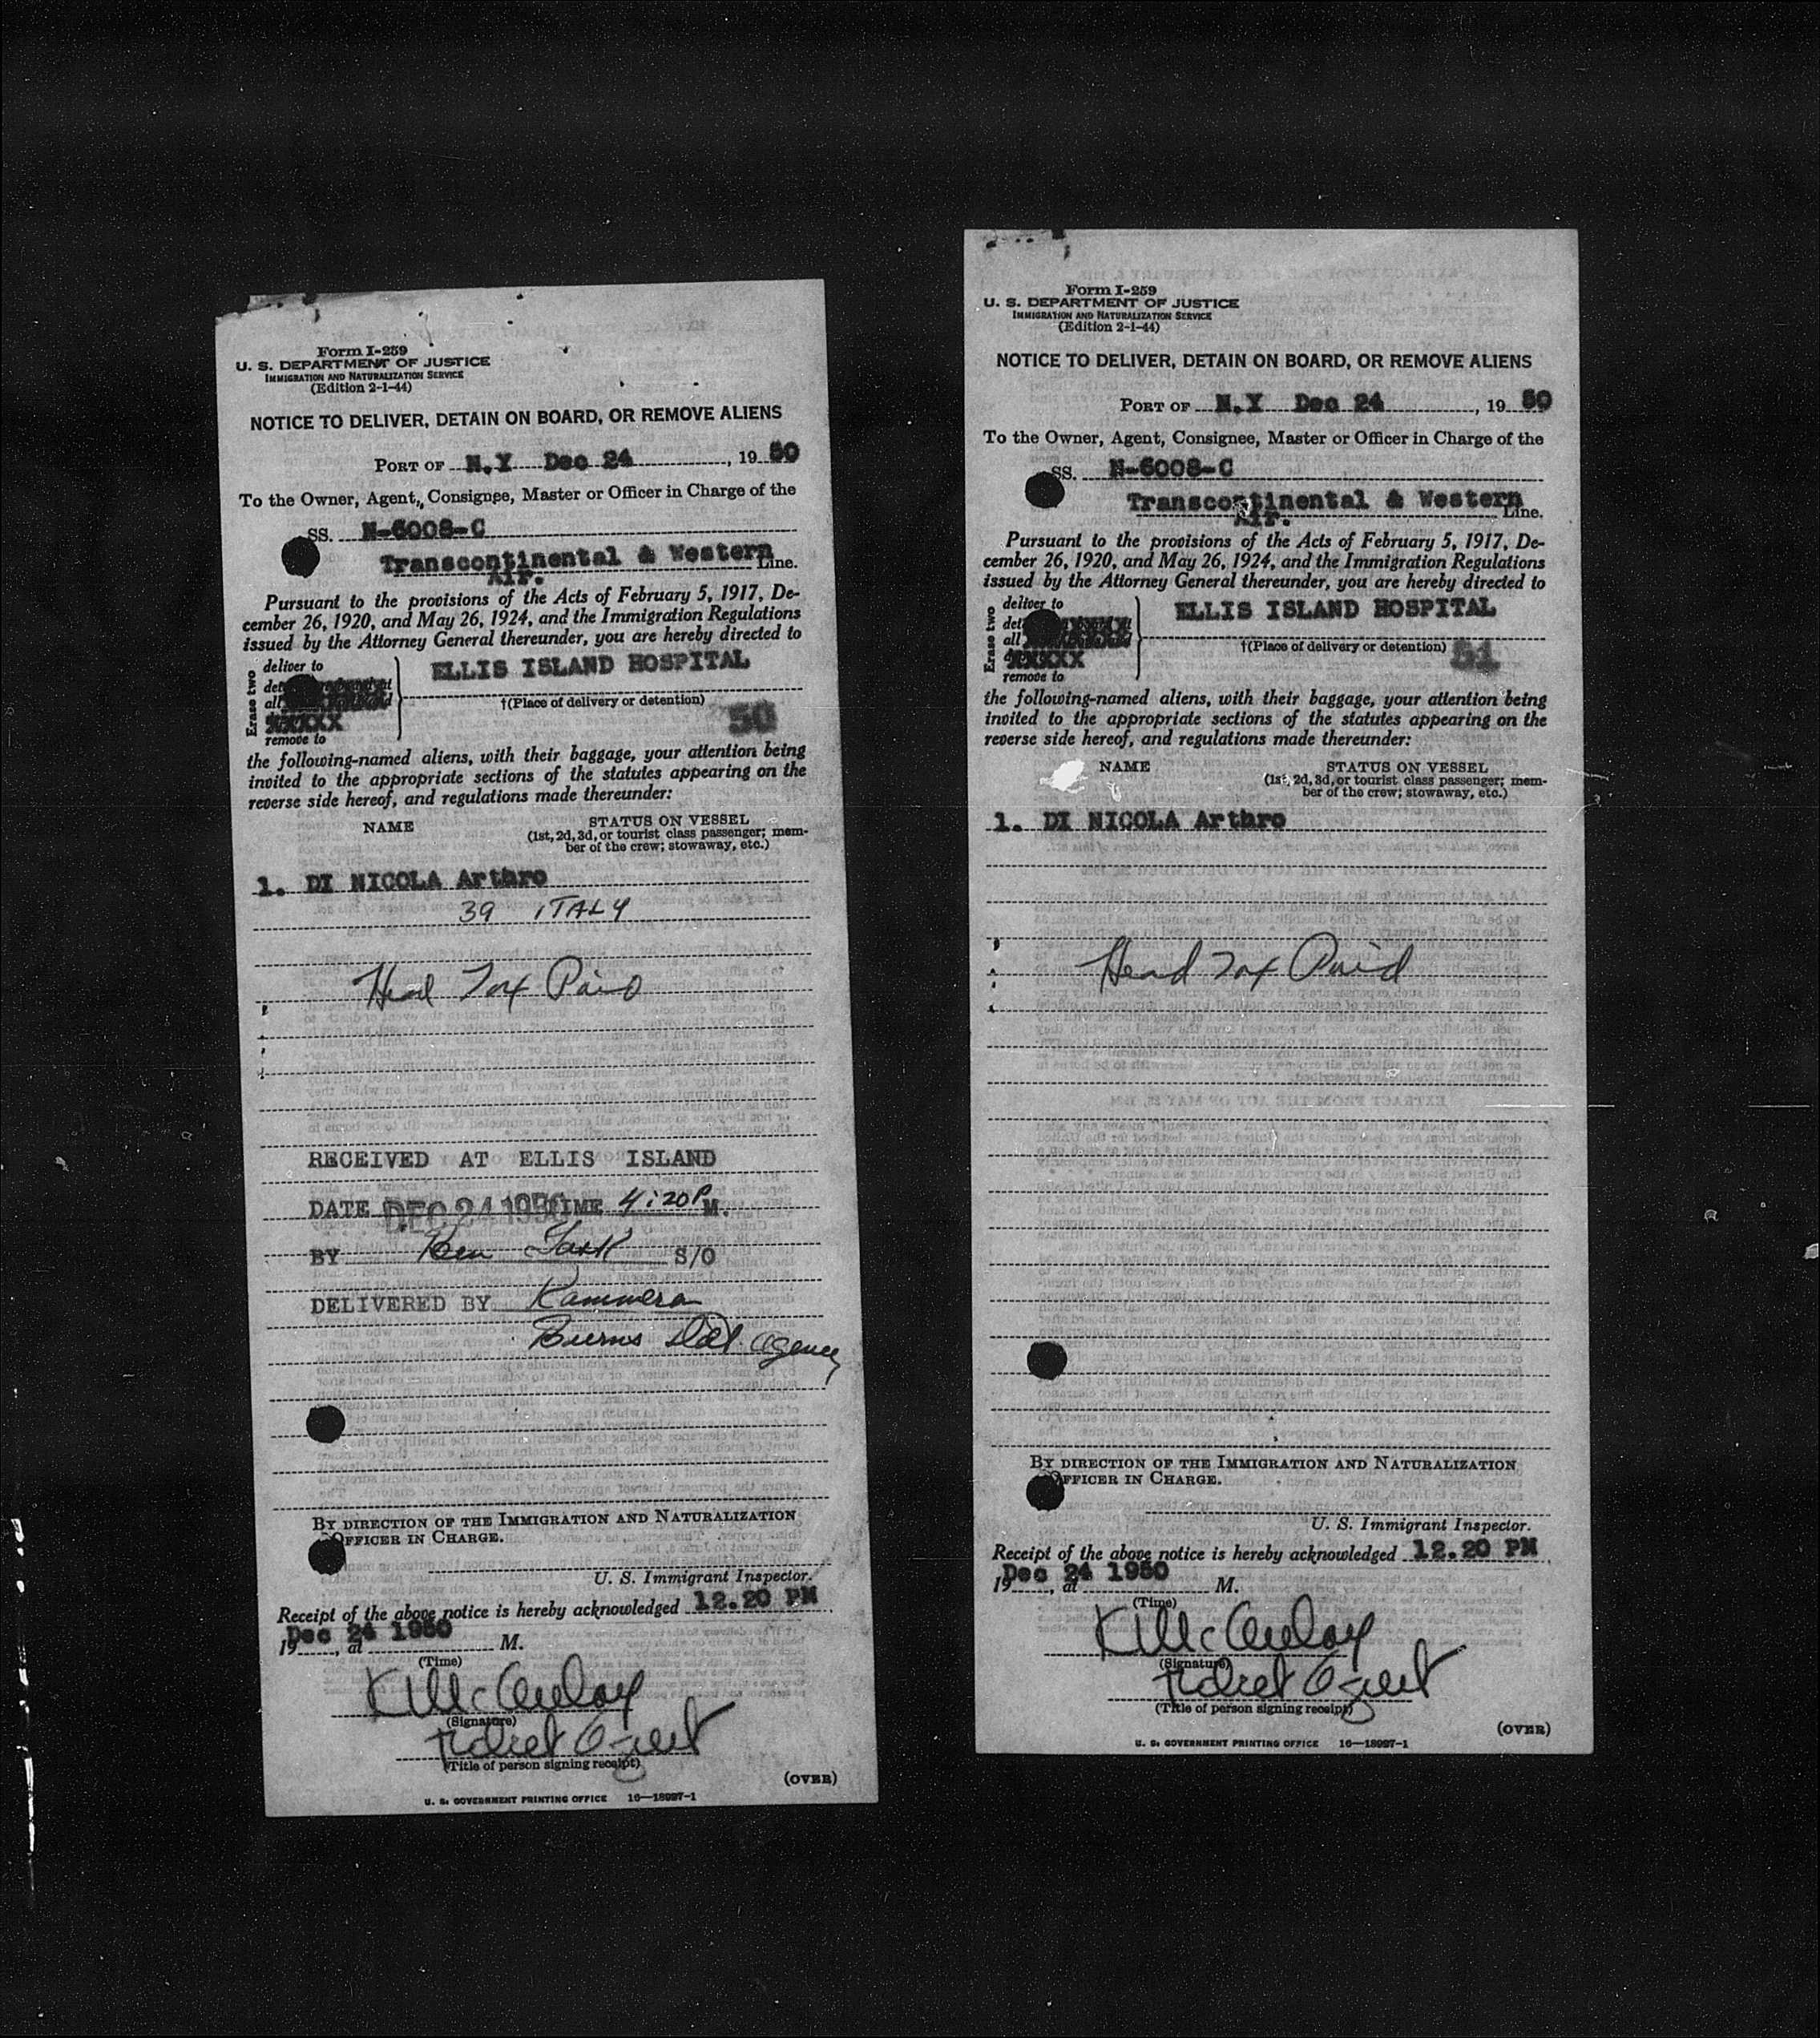 Form I-259
U. S. DEPARTMENT OF JUSTICE
IMMIGRATION AND NATURALIZATION SERVICE
(Edition 2-1-44)
NOTICE TO DELIVER, DETAIN ON BOARD, OR REMOVE ALIENS
PORT OF N.Y Dec 24, 19 50
To the Owner, Agent, Consignee, Master or Officer in Charge of the
SS. N-6008-C
Transcontinental & Western Line.
Air.
Pursuant to the provisions of the Acts of February 5, 1917, De-
cember 26, 1920, and May 26, 1924, and the Immigration Regulations
issued by the Attorney General thereunder, you are hereby directed to
Erase two
deliver to
det
all
remove to
ELLIS ISLAND HOSPITAL
†(Place of delivery or detention)
50
the following-named aliens, with their baggage, your attention being
invited to the appropriate sections of the statutes appearing on the
reverse side hereof, and regulations made thereunder:
NAME STATUS ON VESSEL
(1st, 2d, 3d, or tourist class passenger; mem-
ber of the crew; stowaway, etc.)
1. DI NICOLA Arthro
39 ITALY
Head Tax Paid
RECEIVED AT ELLIS ISLAND
DATE DEC 24 1950 TIME 4:20 P M.
BY Ben S/O
DELIVERED BY Kammera
Burns Det. Agency
BY DIRECTION OF THE IMMIGRATION AND NATURALIZATION
OFFICER IN CHARGE.
U. S. Immigrant Inspector.
Receipt of the above notice is hereby acknowledged 12.20 PM
Dec 24 1950
19, at M.
(Time)
K McAuloy
(Signature)
Ticket Agent
(Title of person signing receipt)
(OVER)
U. S. GOVERNMENT PRINTING OFFICE 16—18927-1
Form I-259
U. S. DEPARTMENT OF JUSTICE
IMMIGRATION AND NATURALIZATION SERVICE
(Edition 2-1-44)
NOTICE TO DELIVER, DETAIN ON BOARD, OR REMOVE ALIENS
PORT OF N.Y Dec 24, 19 50
To the Owner, Agent, Consignee, Master or Officer in Charge of the
SS. N-6008-C
Transcontinental & Western Line.
Air.
Pursuant to the provisions of the Acts of February 5, 1917, De-
cember 26, 1920, and May 26, 1924, and the Immigration Regulations
issued by the Attorney General thereunder, you are hereby directed to
Erase two
deliver to
det
all
remove to
ELLIS ISLAND HOSPITAL
†(Place of delivery or detention)
51
the following-named aliens, with their baggage, your attention being
invited to the appropriate sections of the statutes appearing on the
reverse side hereof, and regulations made thereunder:
NAME STATUS ON VESSEL
(1st, 2d, 3d, or tourist class passenger; mem-
ber of the crew; stowaway, etc.)
1. DI NICOLA Arthro
Head Tax Paid
BY DIRECTION OF THE IMMIGRATION AND NATURALIZATION
OFFICER IN CHARGE.
U. S. Immigrant Inspector.
Receipt of the above notice is hereby acknowledged 12.20 PM
Dec 24 1950
19, at M.
(Time)
K McAuloy
(Signature)
Ticket Agent
(Title of person signing receipt)
(OVER)
U. S. GOVERNMENT PRINTING OFFICE 16—18927-1